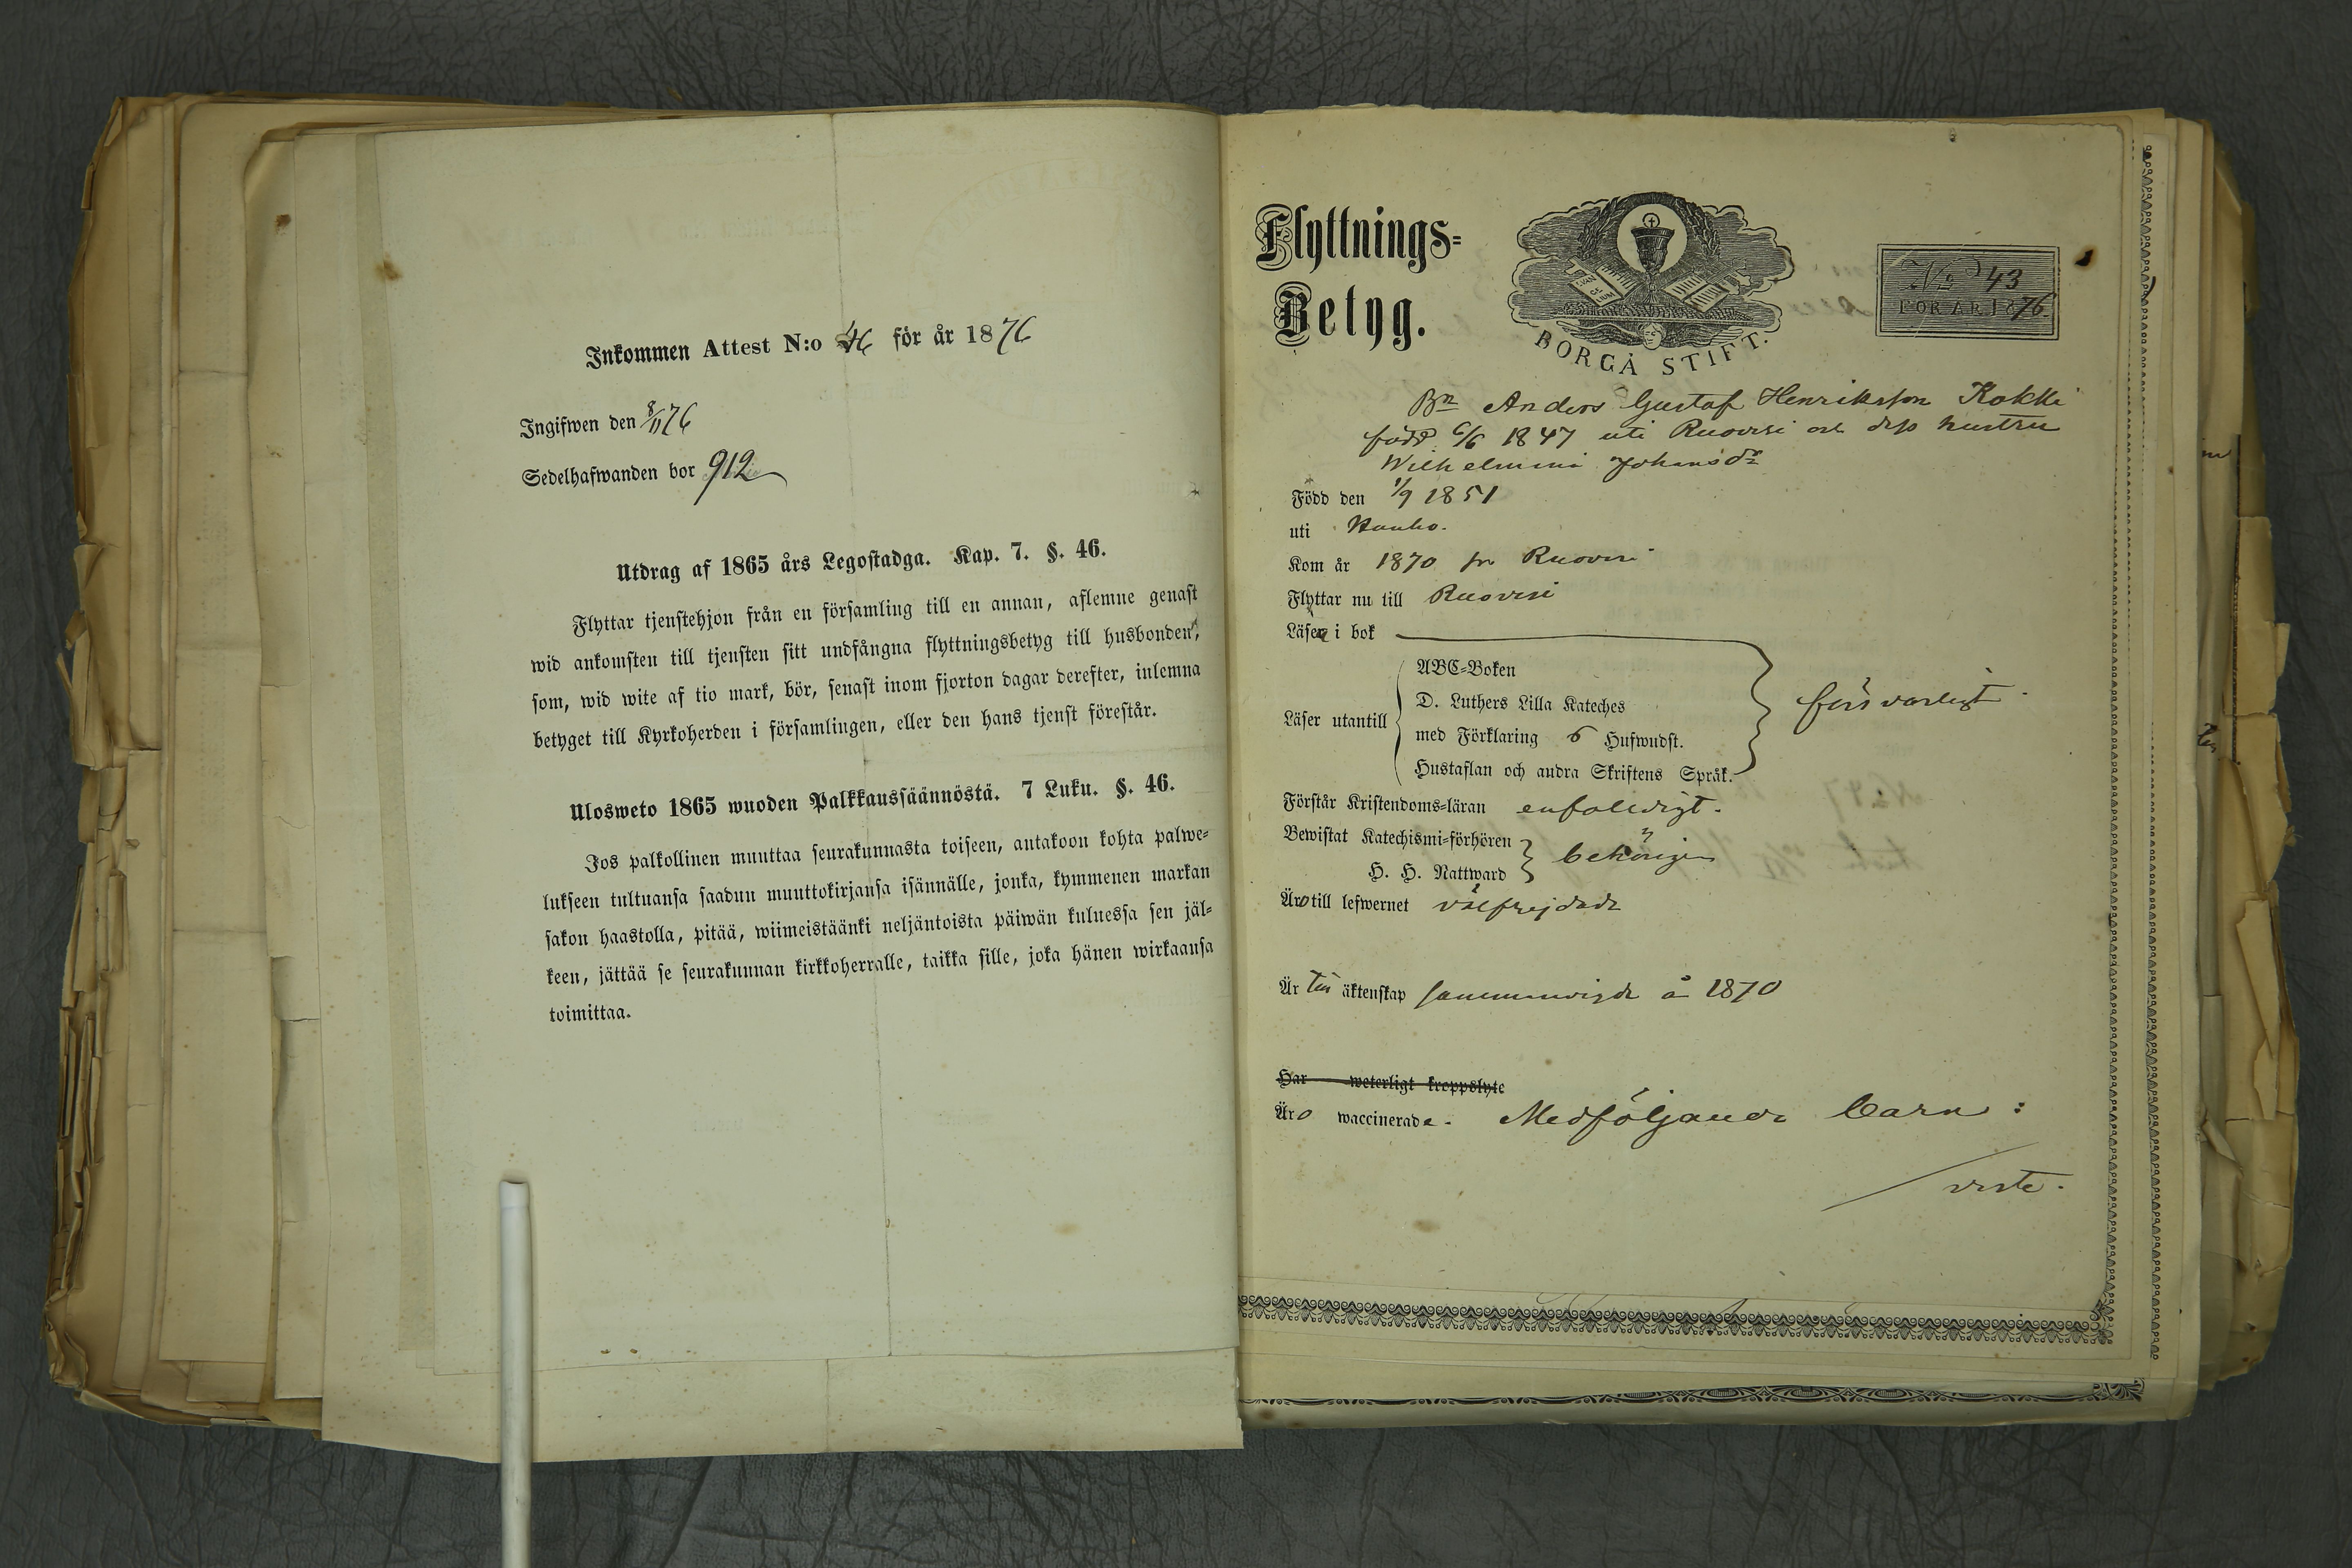 Inkommen Attest N:o 46 för år 1876
Ingifwen den 8/11 76
Sedelhafwanden bor 912
Utdrag af 1865 års Legostadga. Kap. 7. §. 46.
Flyttar tjenstehjon från en församling till en annan, aflemne genast
wid ankomsten till tjensten sitt undfångna flyttningsbetyg till husbonden,
som, wid wite af tio mark, bör, senast inom fjorton dagar derefter, inlemna
betyget till Kyrkoherden i församlingen, eller den hans tjenst förestår.
Ulosweto 1865 wuoden Palkkaussäännöstä. 7 Luku. §. 46.
Jos palkollinen muuttaa seurakunnasta toiseen, antakoon kohta palwe-
lukseen tultuansa saadun muuttokirjansa isännälle, jonka, kymmenen markan
sakon haastolla, pitää, wiimeistäänki neljäntoista päiwän kuluessa sen jäl-
keen, jättää se seurakunnan kirkkoherralle, taikka sille, joka hänen wirkaansa
toimittaa.
Flyttnings-
Betyg.
EVAN
GE
LIUM
BORGÅ STIFT.
No 43
FÖR ÅR 1876.
Bn Anders Gustaf Henriksson Kokki
född 6/6 1847 uti Ruovesi och dess hustru
Wilhelmina Johansdr
Född den 1/9 1851
uti Hauho.
Kom år 1870 fr Ruovesi
Flyttar nu till Ruovesi
Läsa i bok
Läser utantill
ABC-Boken
D. Luthers Lilla Kateches
med Förklaring 6 Hufwudst.
Hustaflan och andra Skriftens Språk.
försvarligt
Förstår Kristendoms-läran enfaldigt.
Bewistat Katechismi-förhören
H. H. Nattward
behörigen
Äro till lefwernet välfrejdade
Är till äktenskap sammanvigde å 1870
Har weterligt kroppslyte
Äro waccinerade. Medföljande barn:
verte.